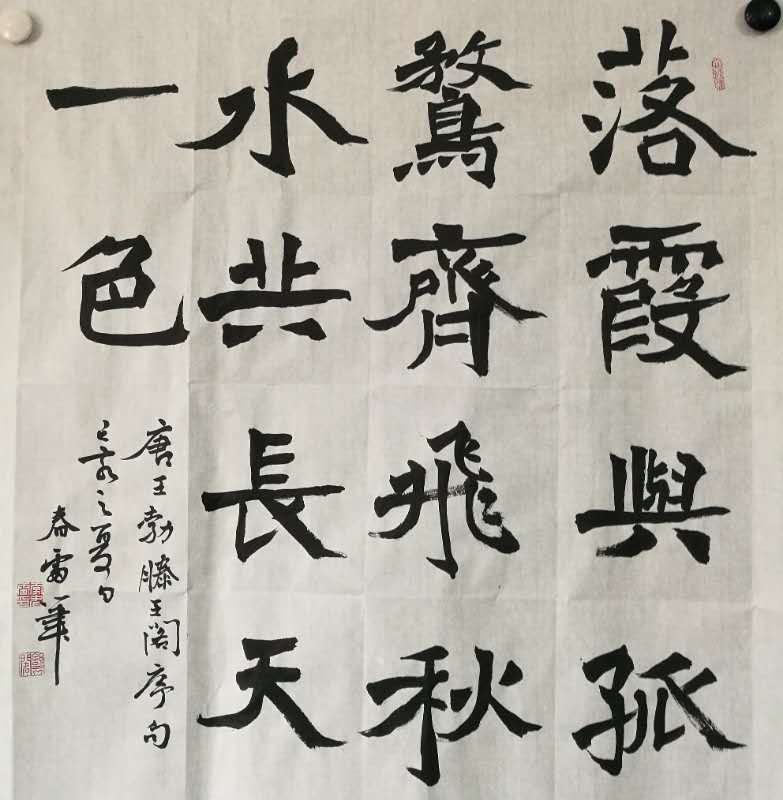 落霞與孤
鶩齊飛秋
水共長天
一色
唐王勃滕王閣序句
己亥之夏
春雷筆